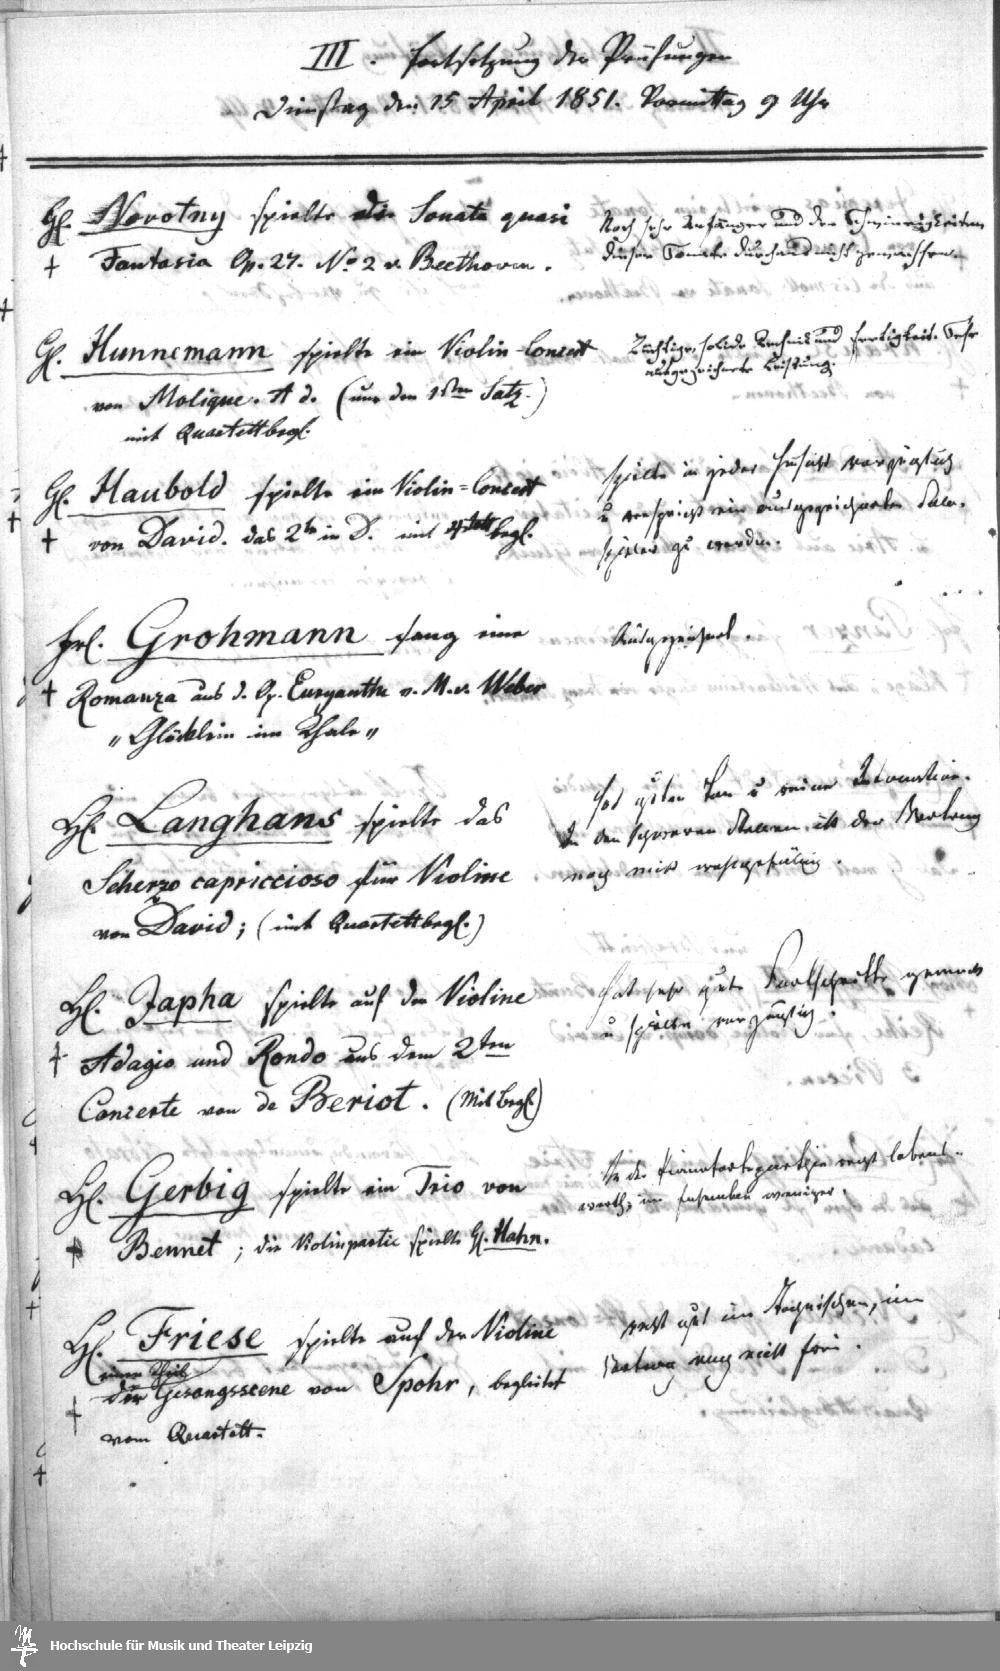 III. Fortsetzung der Prüfungen
Dienstag den 15 April 1851. Vormittag 9 Uhr
H. Novotny spielte die Sonata quasi
Fantasia Op. 27. No 2 v. Beethoven.
Noch sehr Anfänger und den Schwierigkeiten
dieser Sonate durchaus nicht gewachsen.
H. Hunnemann spielte ein Violin-Concert
von Molique. A d. (nur den 1sten Satz.)
mit Quartettbegl.
Tüchtige, solide Technik und Fertigkeit. Sehr
ausgezeichnete Leistung.
H. Haubold spielte ein Violin-Concert
von David. das 2te in D. mit begl.
spielte in jeder Hinsicht vorzüglich
u verspricht ein ausgezeichneter Solo-
spieler zu werden.
Frl. Grohmann sang eine
Romanza aus d. Op. Euryanthe v. M. v. Weber
„Glöcklein im Thale„
Ausgezeichnet.
H. Langhans spielte das
Scherzo capriccioso für Violine
von David; (mit Quartettbegl.)
Hat guten Ton u reine Intonation.
In den schweren Stellen ist der Vortrag
noch nicht
H. Japha spielte auf der Violine
Adagio und Rondo aus dem 2ten
Concerte von de Beriot. (Mit Begl.)
Hat sehr gute Fortschritte gemacht
u spielte vorzüglich.
H. Gerbig spielte ein Trio von
Bennet; die Violinpartie spielte H. Hahn.
In der Pianofortepartie recht lobens-
werth, im Ensemble weniger.
H. Friese spielte auf der Violine
einen Theil
der Gesangsscene von Spohr, begleitet
vom Quartett.
recht gut im Technischen, im
Vortrag noch nicht frei.
Hochschule für Musik und Theater Leipzig